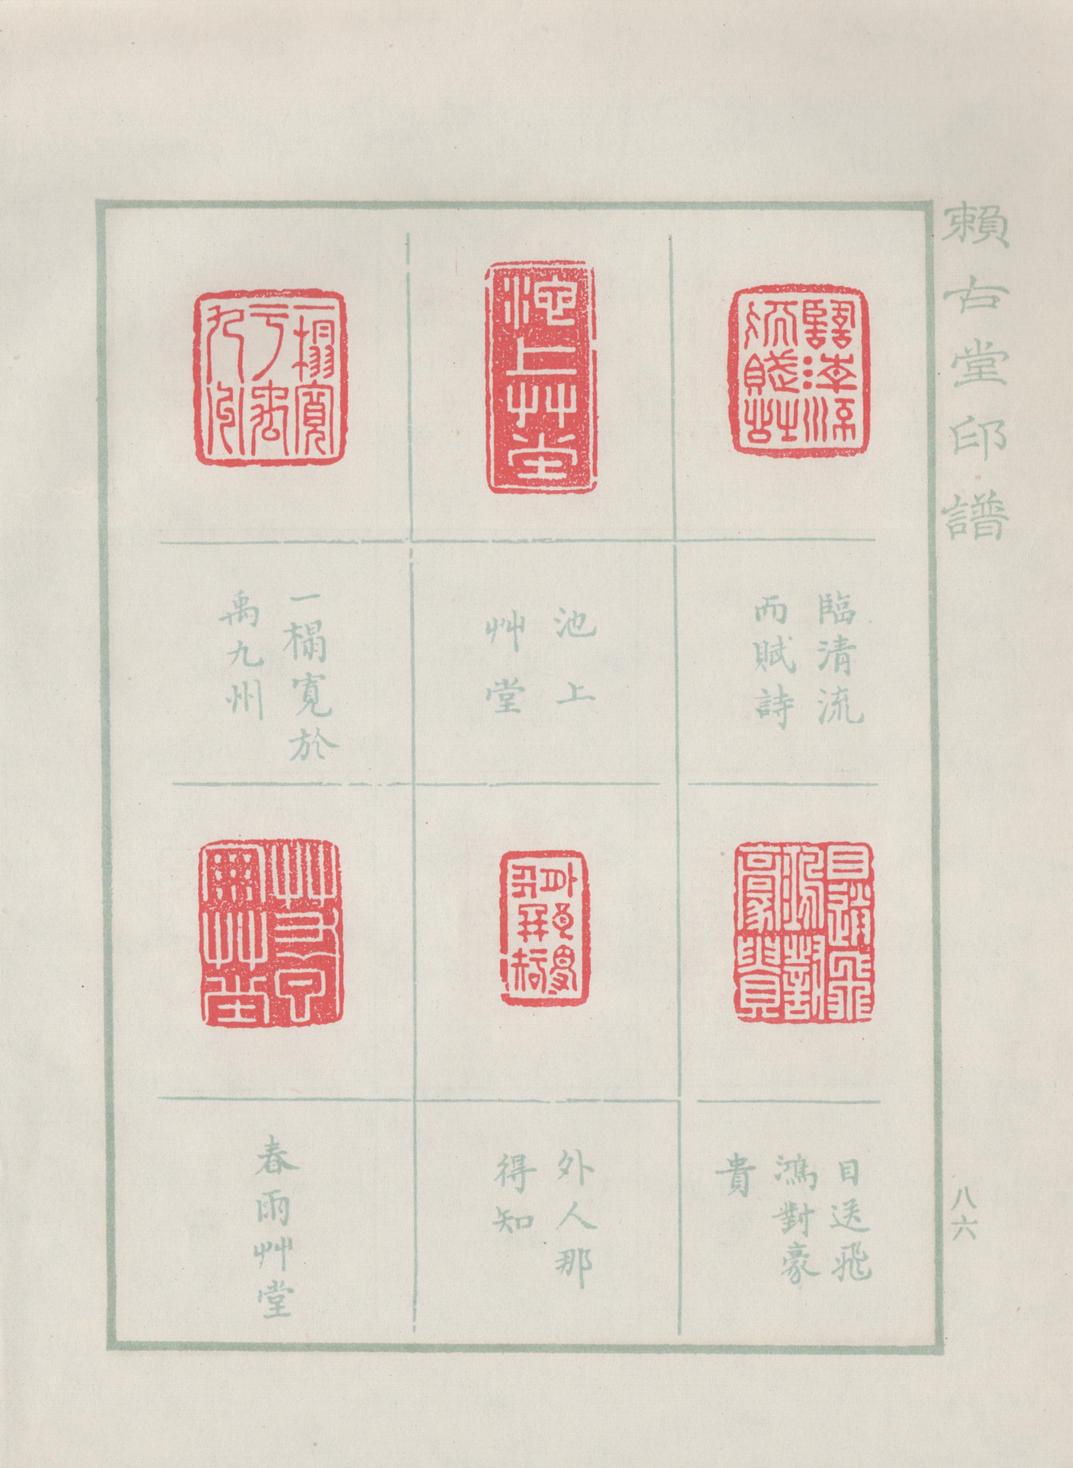 賴古堂印譜
臨清流
而賦詩
池上
艸堂
一榻寬於
禹九州
目送飛
鴻對豪
貴
外人那
得知
春雨艸堂
八六